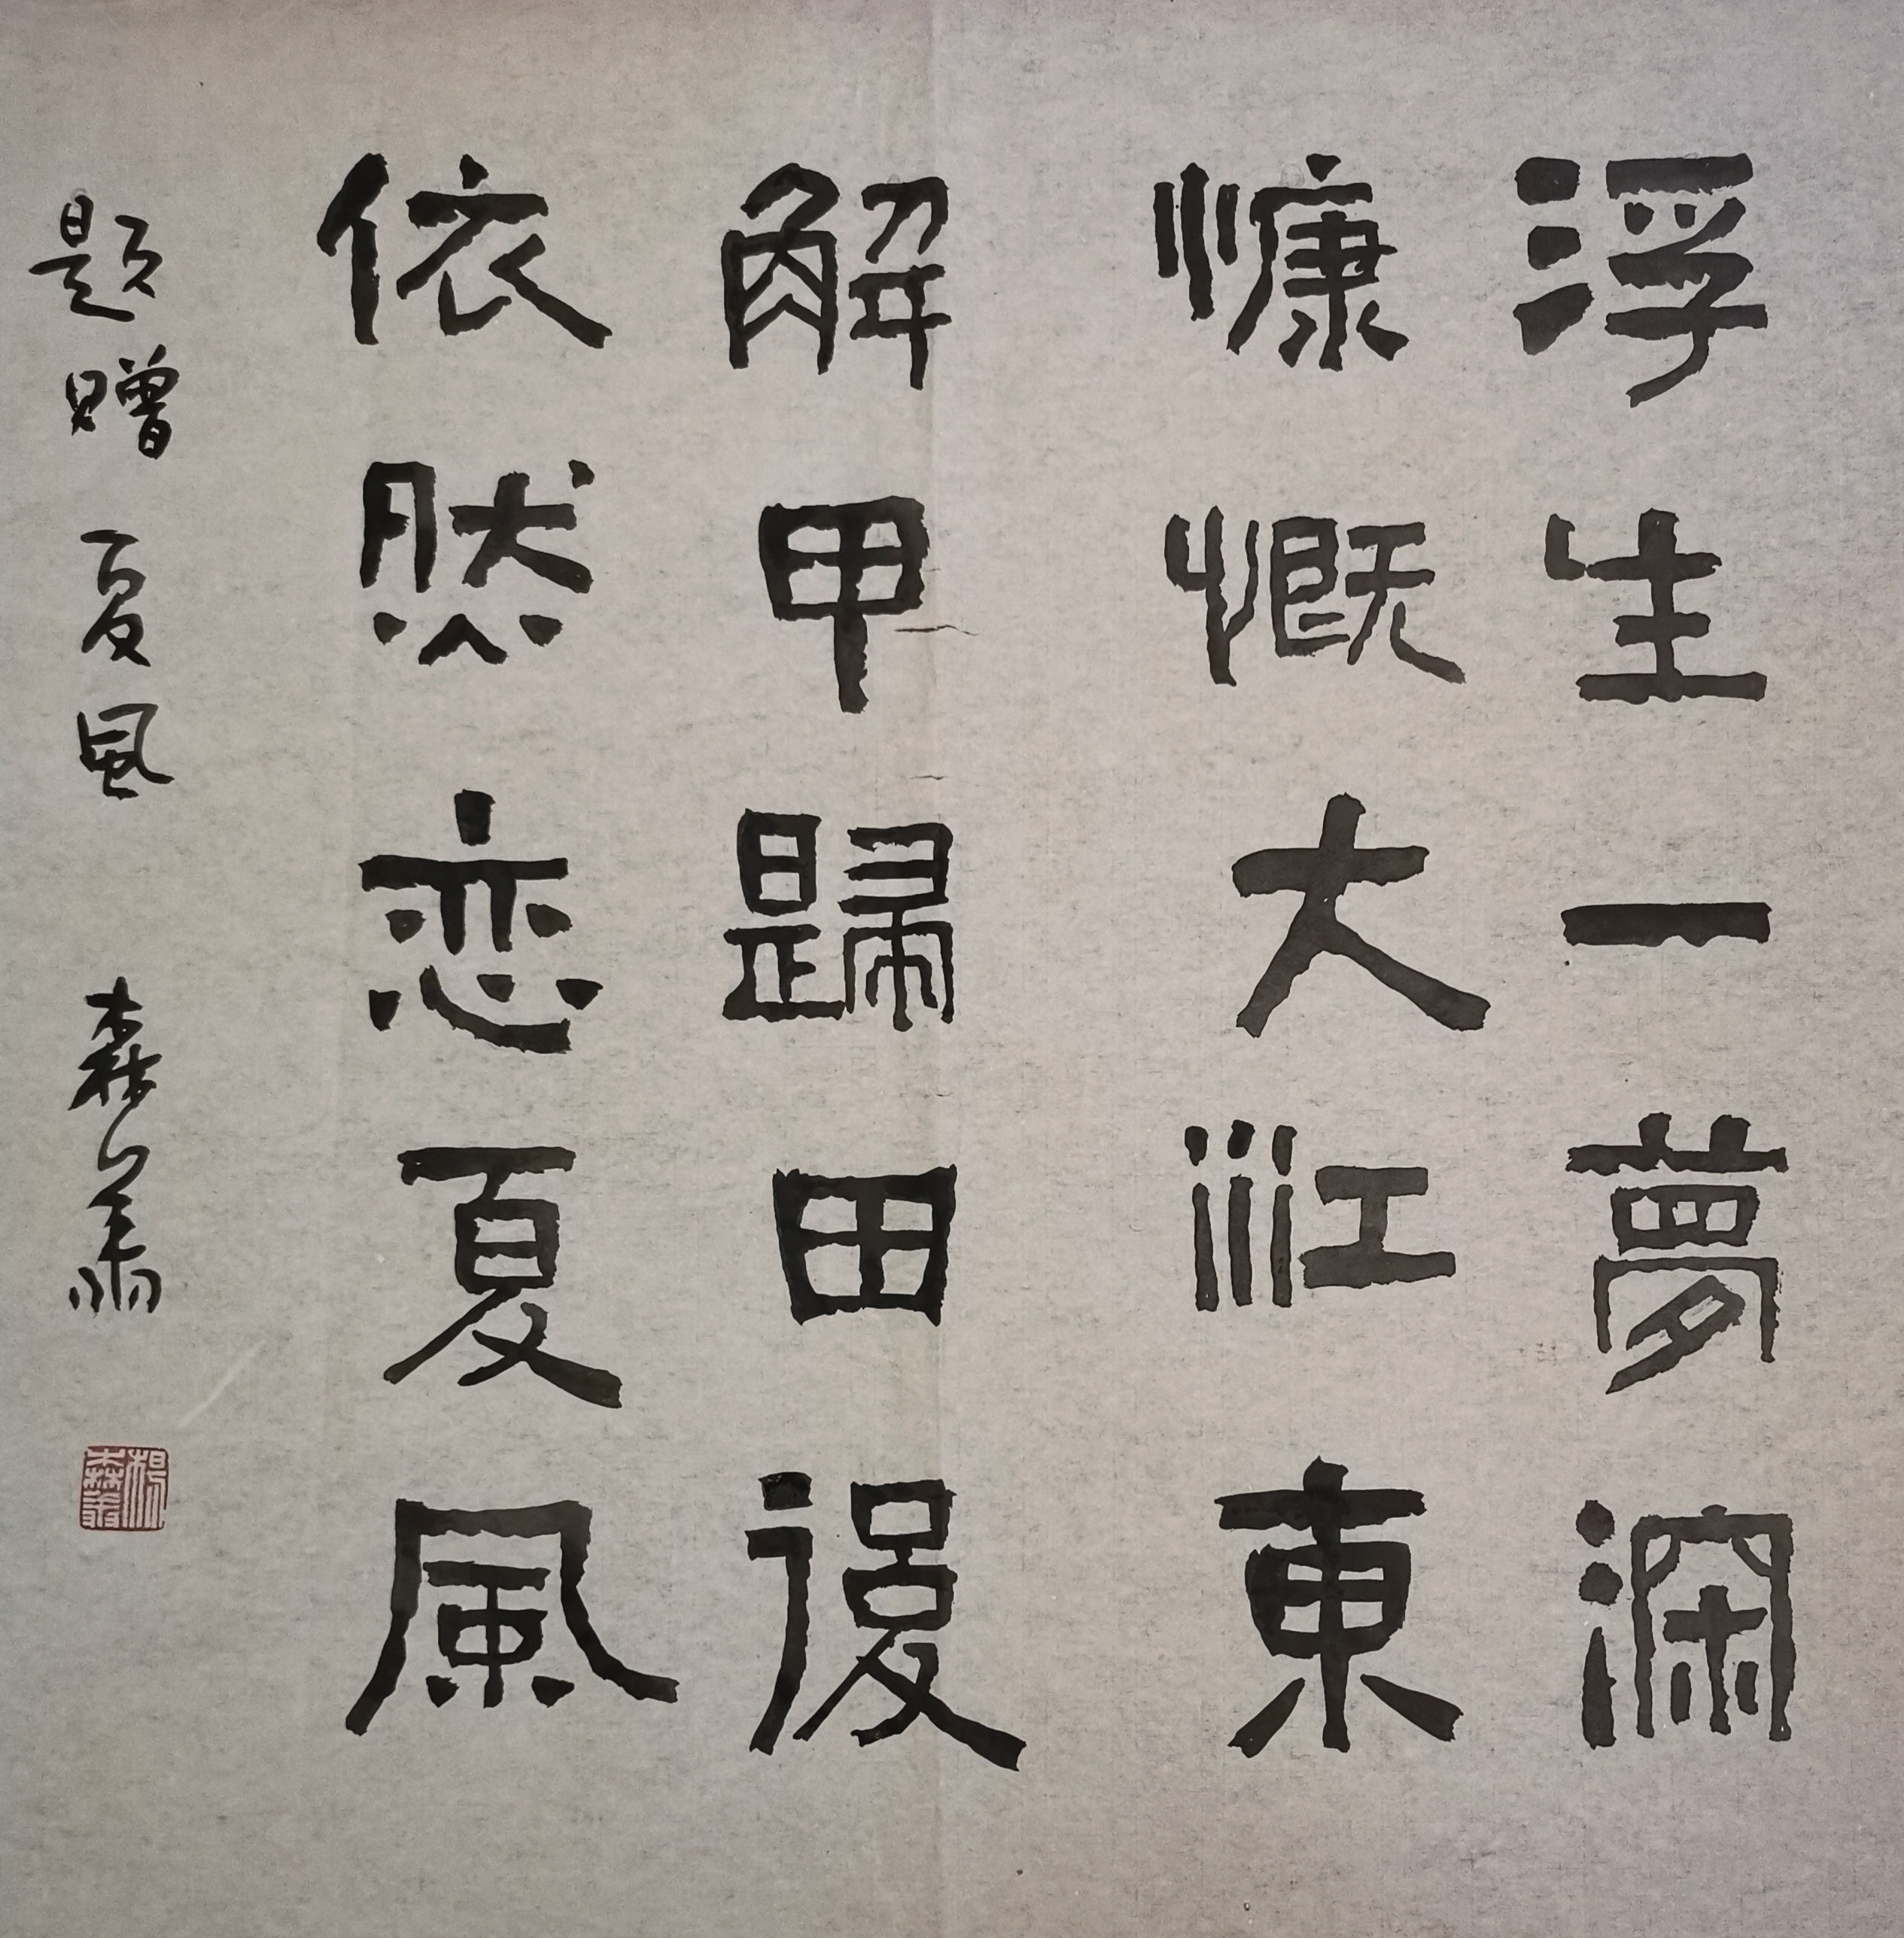 浮生一夢深
慷慨大江東
解甲歸田後
依然恋夏風
題贈 夏風 森